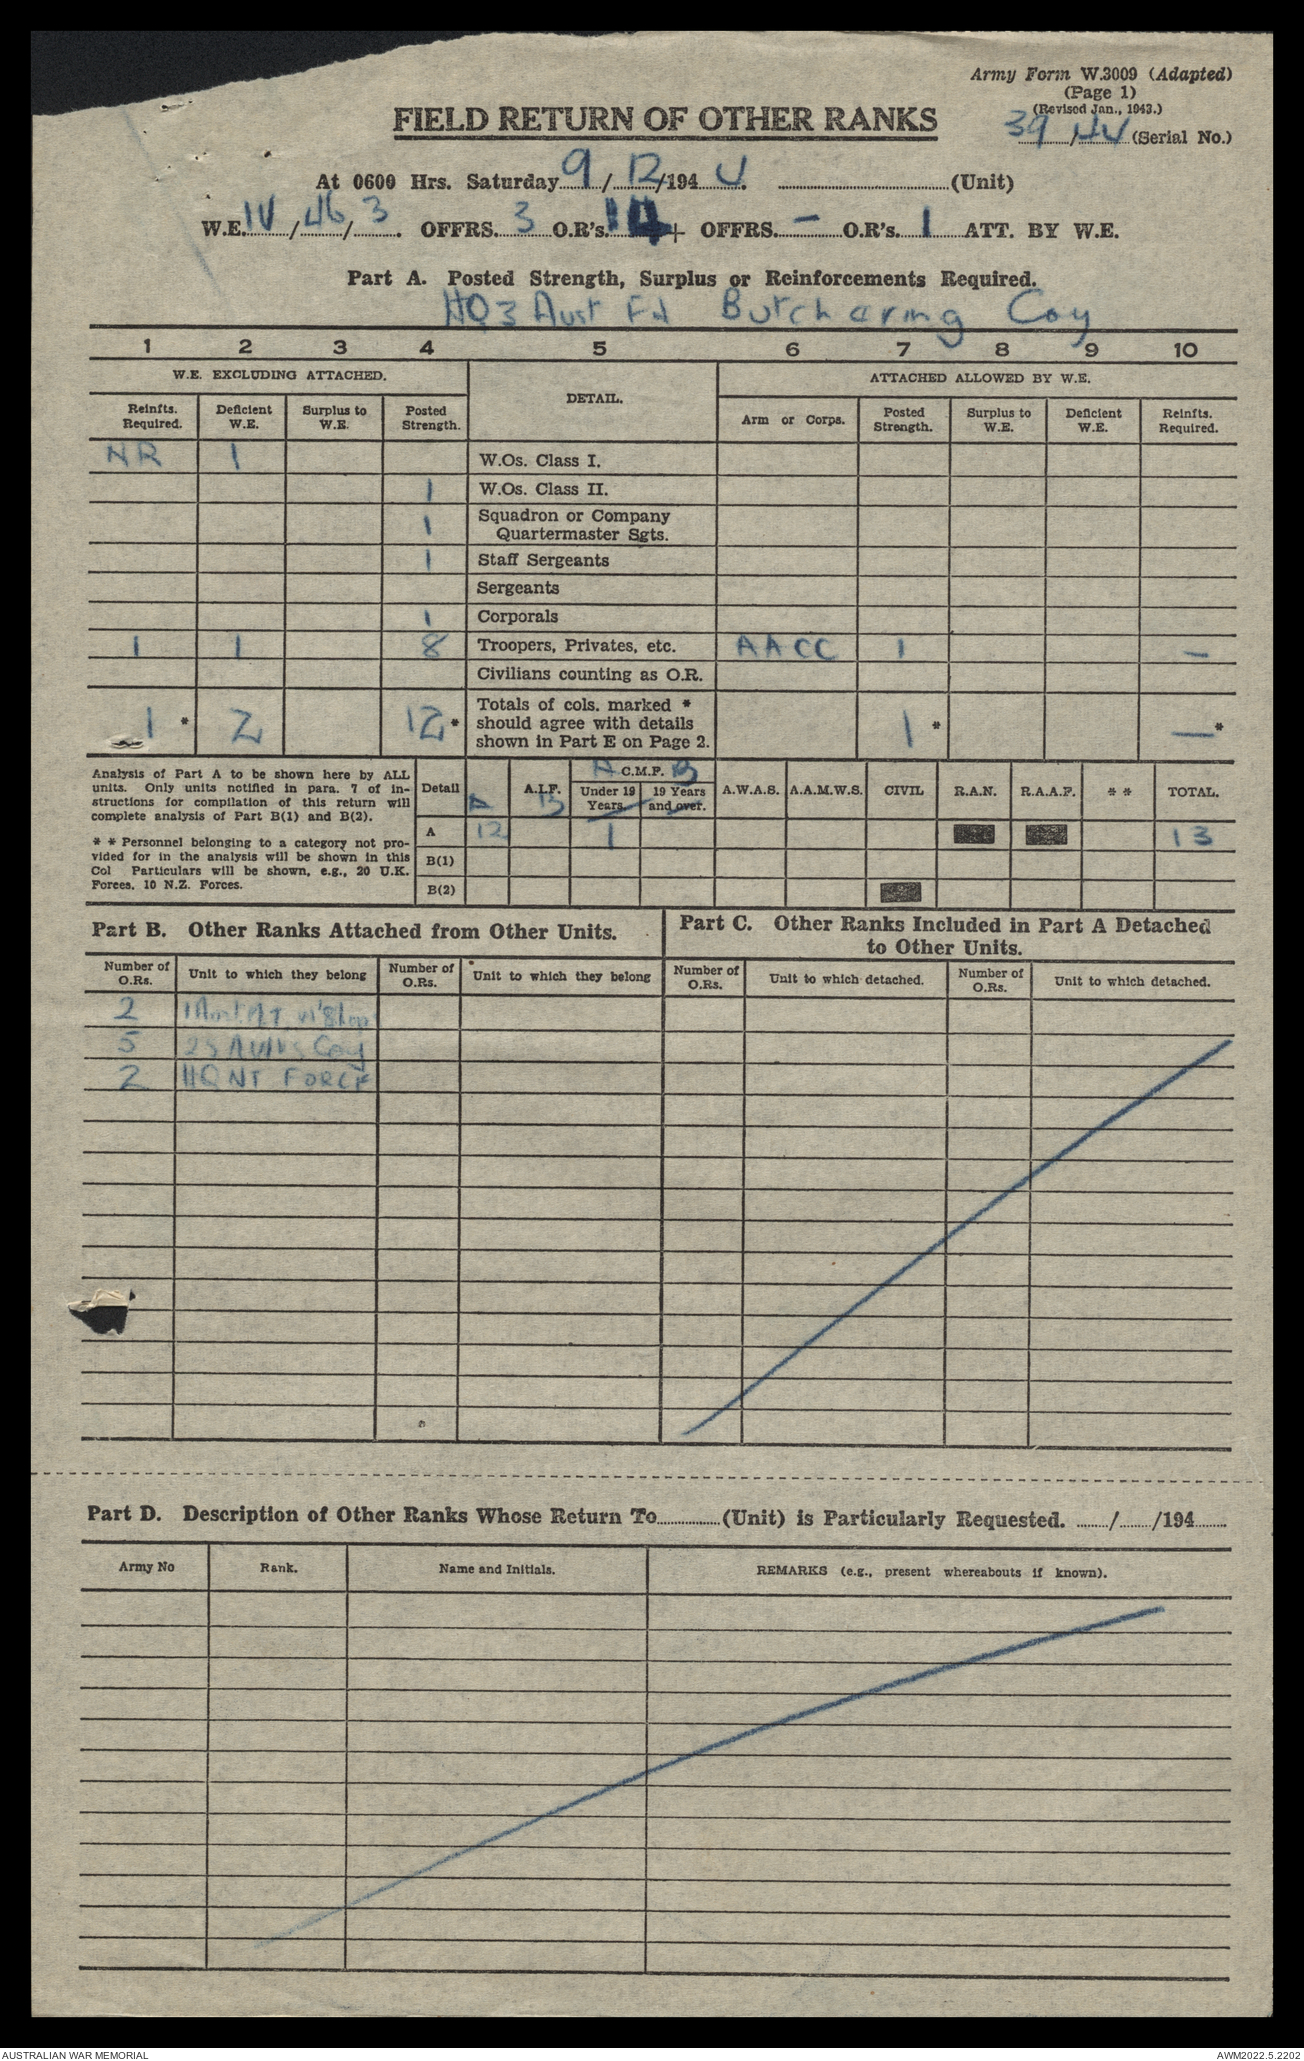 Army Form W.3009 (Adapted)
(Page 1)
(Revised Jan., 1943.)
39/44 (Serial No.)
FIELD RETURN OF OTHER RANKS
At 0600 Hrs. Saturday 9/12/1944. (Unit)
W.E. IV/46/3. OFFRS. 3 O.R's. 14 + OFFRS. - O.R's. 1 ATT. BY W.E.
Part A. Posted Strength, Surplus or Reinforcements Required.
HQ 3 Aust Fd Butchering Coy
1 2 3 4 5 6 7 8 9 10
W.E. EXCLUDING ATTACHED. DETAIL. ATTACHED ALLOWED BY W.E.
Reinfts. Required. Deficient W.E. Surplus to W.E. Posted Strength. Arm or Corps. Posted Strength. Surplus to W.E. Deficient W.E. Reinfts. Required.
NR 1 W.Os. Class I.
1 W.Os. Class II.
1 Squadron or Company
Quartermaster Sgts.
1 Staff Sergeants
Sergeants
1 Corporals
1 1 8 Troopers, Privates, etc. AACC 1 -
Civilians counting as O.R.
1* 2 12* Totals of cols. marked * 1* -*
should agree with details
shown in Part E on Page 2.
Analysis of Part A to be shown here by ALL
units. Only units notified in para. 7 of in-
structions for compilation of this return will
complete analysis of Part B(1) and B(2).
* * Personnel belonging to a category not pro-
vided for in the analysis will be shown in this
Col Particulars will be shown, e.g., 20 U.K.
Forces, 10 N.Z. Forces.
Detail A A.I.F. B A C.M.F. B A.W.A.S. A.A.M.W.S. CIVIL R.A.N. R.A.A.F. * * TOTAL.
Under 19 Years. 19 Years and over.
A 12 1 13
B(1)
B(2)
Part B. Other Ranks Attached from Other Units.
Part C. Other Ranks Included in Part A Detached
to Other Units.
Number of O.Rs. Unit to which they belong Number of O.Rs. Unit to which they belong Number of O.Rs. Unit to which detached. Number of O.Rs. Unit to which detached.
2
5 Coy
2 HQ NT FORCE
Part D. Description of Other Ranks Whose Return To (Unit) is Particularly Requested. / /194
Army No Rank. Name and Initials. REMARKS (e.g., present whereabouts if known).
AUSTRALIAN WAR MEMORIAL
AWM2022.5.2202